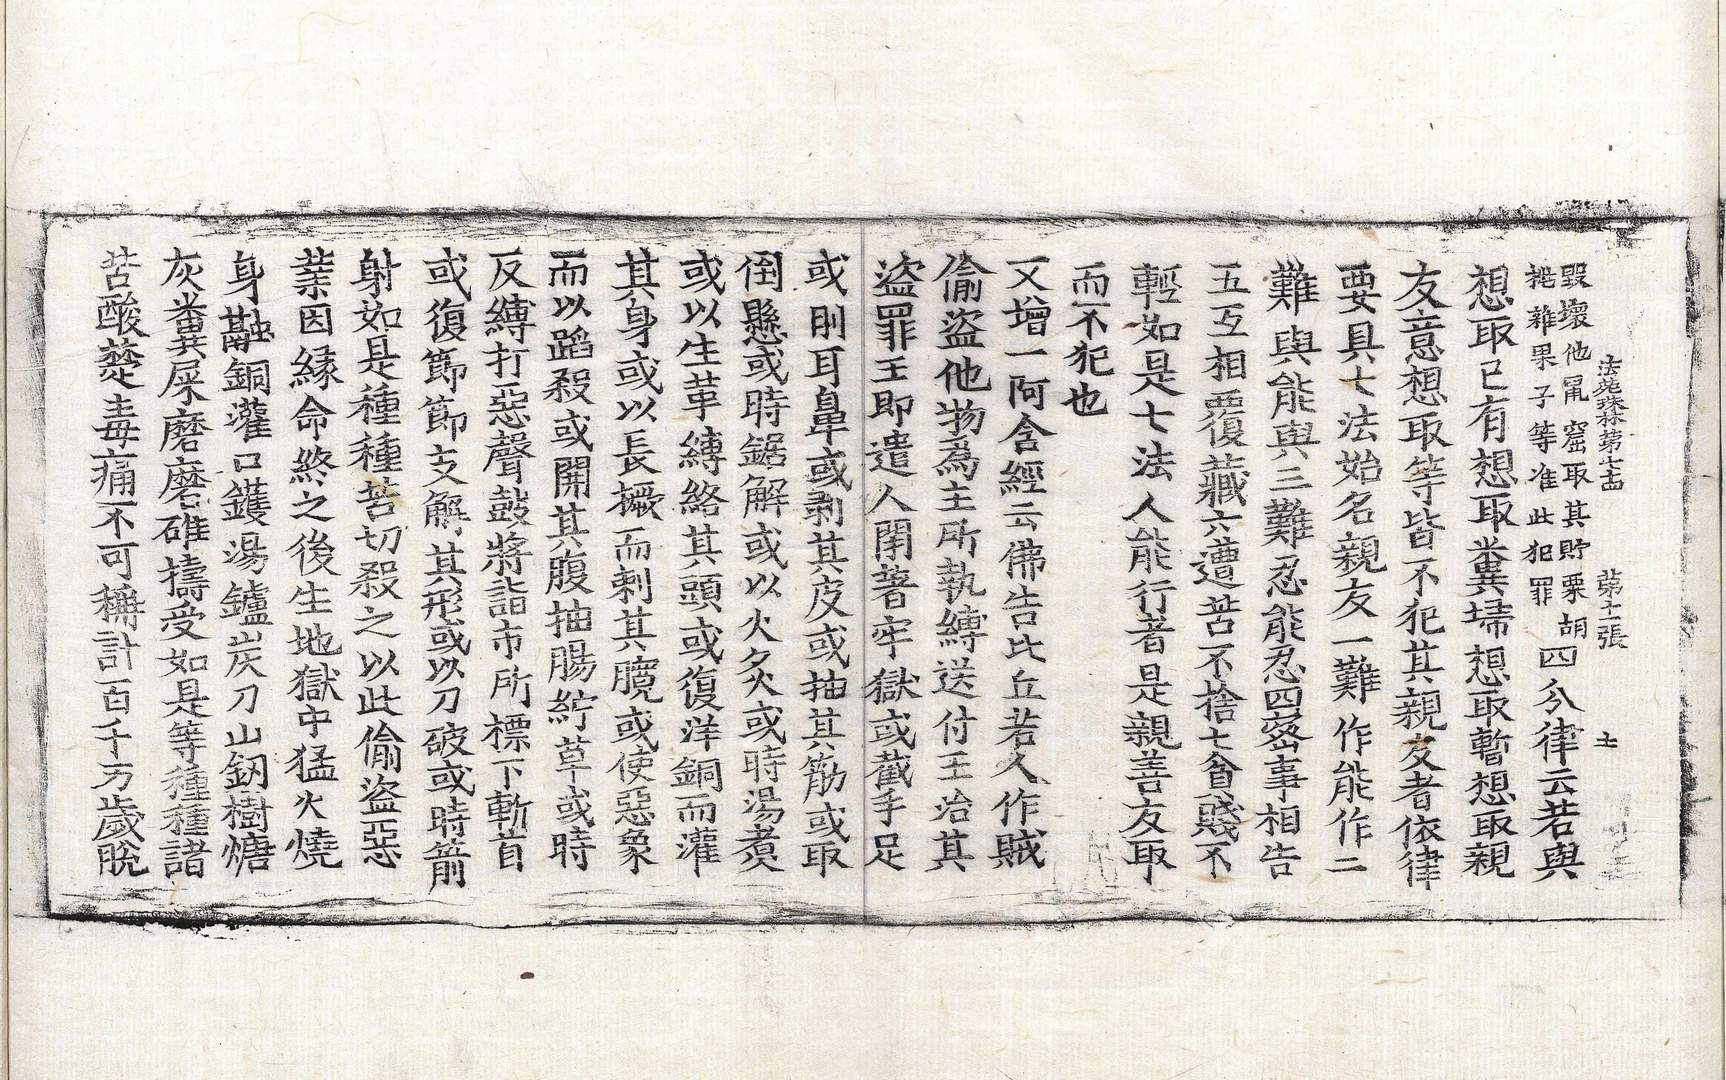 法苑珠林第七十四 第十一張 土
毀壞他鼠窟取其貯栗胡
桃雜果子等准此犯罪
四分律云若與
想取已有想取糞埽想取暫想取親
友意想取等皆不犯其親友者依律
要具七法始名親友一難作能作二
難與能與三難忍能忍四密事相告
五互相覆藏六遭苦不捨七貧賤不
輕如是七法人能行者是親善友取
而不犯也
又增一阿含經云佛告比丘若人作賊
偷盜他物為主所執縛送付王治其
盜罪王即遣人閉著牢獄或截手足
或刖耳鼻或剥其皮或抽其筋或取
倒懸或時鋸解或以火炙或時湯煮
或以生革縛絡其頭或復洋銅而灌
其身或以長橛而剌其臗或使惡象
而以蹈殺或開其腹抽腸紵草或時
反縛打惡聲鼓將詣市所標下斬首
或復節節支解其形或以刀破或時箭
射如是種種苦切殺之以此偷盜惡
業因縁命終之後生地獄中猛火燒
身融銅灌口鑊湯鑪炭刀山釰樹煻
灰糞屎磨磨碓擣受如是等種種諸
苦酸楚毒痛不可稱計百千万歲脫